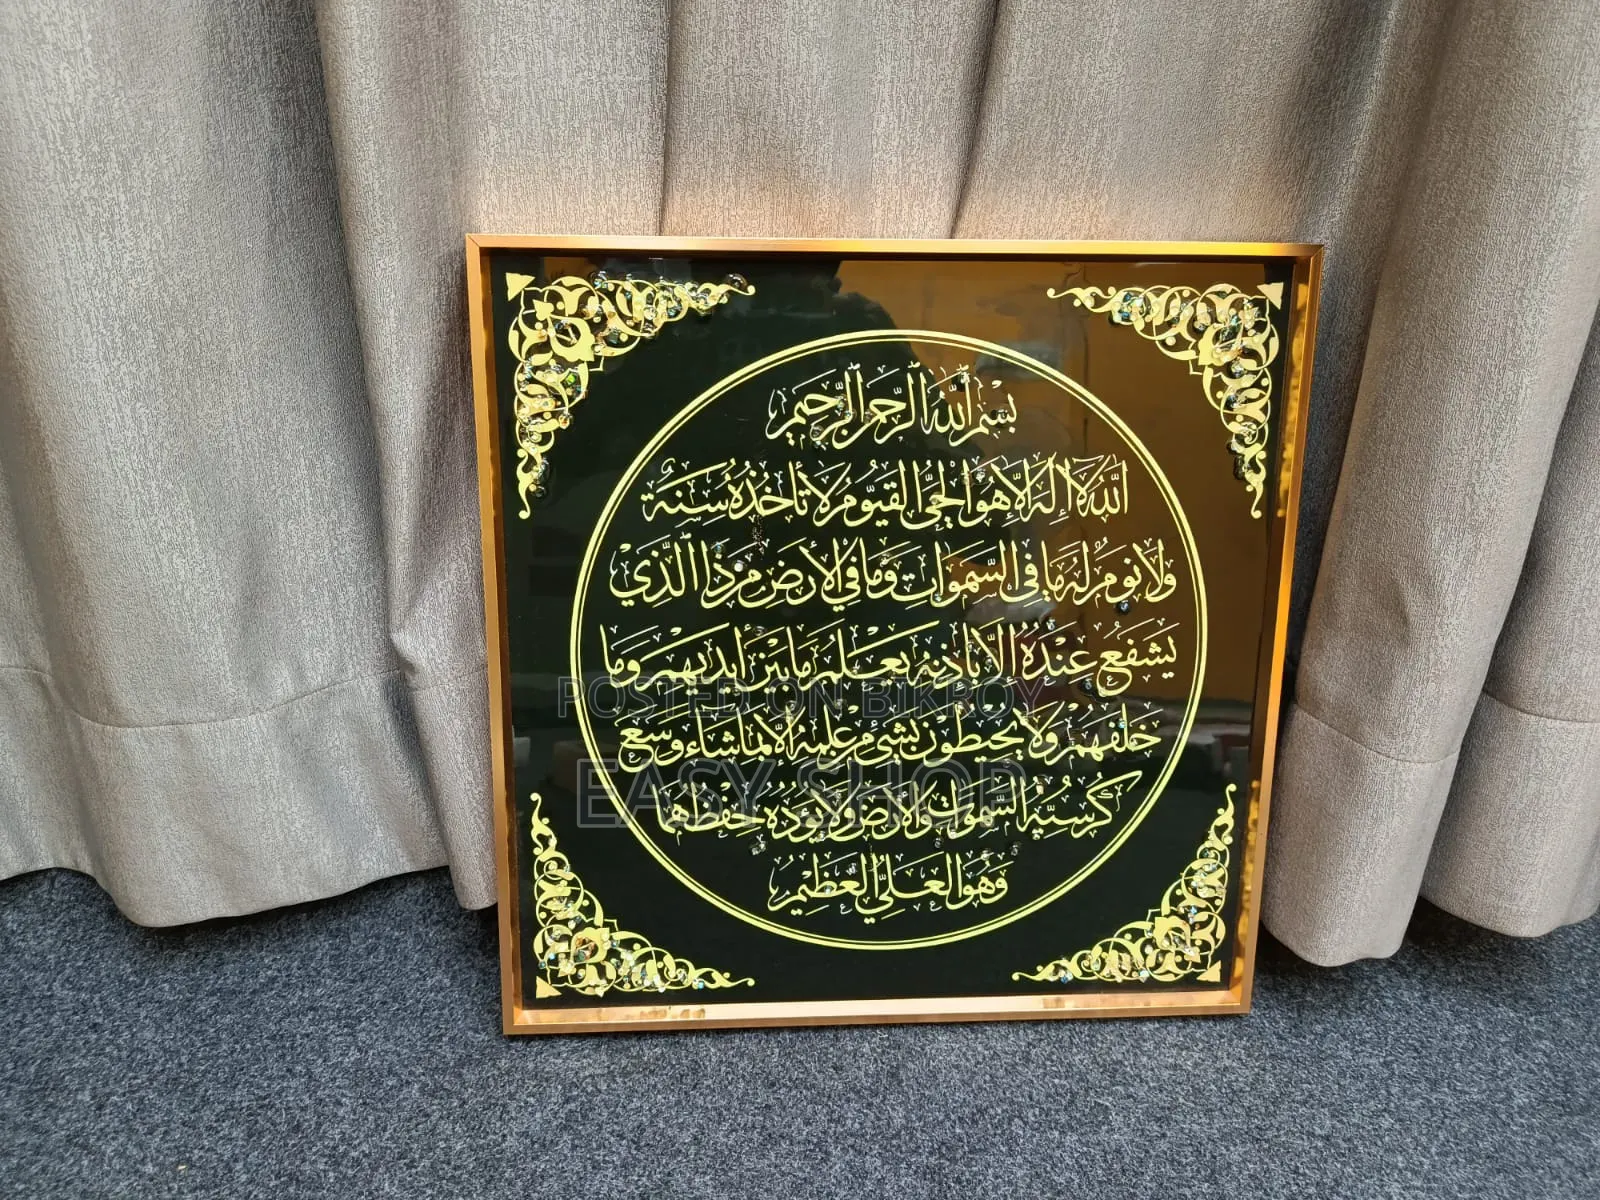 بِسْمِ اللَّهِ الرَّحْمَنِ الرَّحِيمِ
اللَّهُ لَا إِلَهَ إِلَّا هُوَ الْحَيُّ الْقَيُّومُ لَا تَأْخُذُهُ سِنَةٌ
وَلَا نَوْمٌ لَهُ مَا فِي السَّمَوَاتِ وَمَا فِي الْأَرْضِ مَنْ ذَا الَّذِي
يَشْفَعُ عِنْدَهُ إِلَّا بِإِذْنِهِ يَعْلَمُ مَا بَيْنَ أَيْدِيهِمْ وَمَا
خَلْفَهُمْ وَلَا يُحِيطُونَ بِشَيْءٍ مِنْ عِلْمِهِ إِلَّا بِمَا شَاءَ وَسِعَ
كُرْسِيُّهُ السَّمَوَاتِ وَالْأَرْضَ وَلَا يَئُودُهُ حِفْظُهُمَا
وَهُوَ الْعَلِيُّ الْعَظِيمُ
POSTED ON BIKROY
EASY SHOP